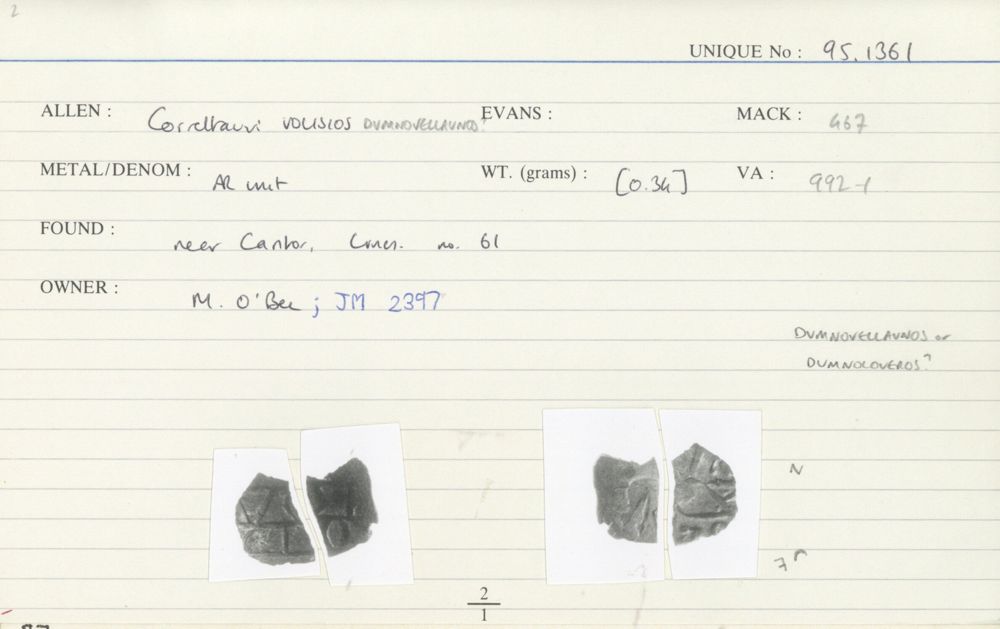 2
UNIQUE No : 95.1361
ALLEN : Correltauvi VOLISIOS DUMNOVELLAUNOS? EVANS : MACK : 467
METAL/DENOM : AR unit WT. (grams) : [0.34] VA : 992-1
FOUND : near Cantor, Lincs. no. 61
OWNER : M. O'Bee ; JM 2397
DVMNOVELLAVNOS or
DVMNOCOVEROS?
N
7
2
1